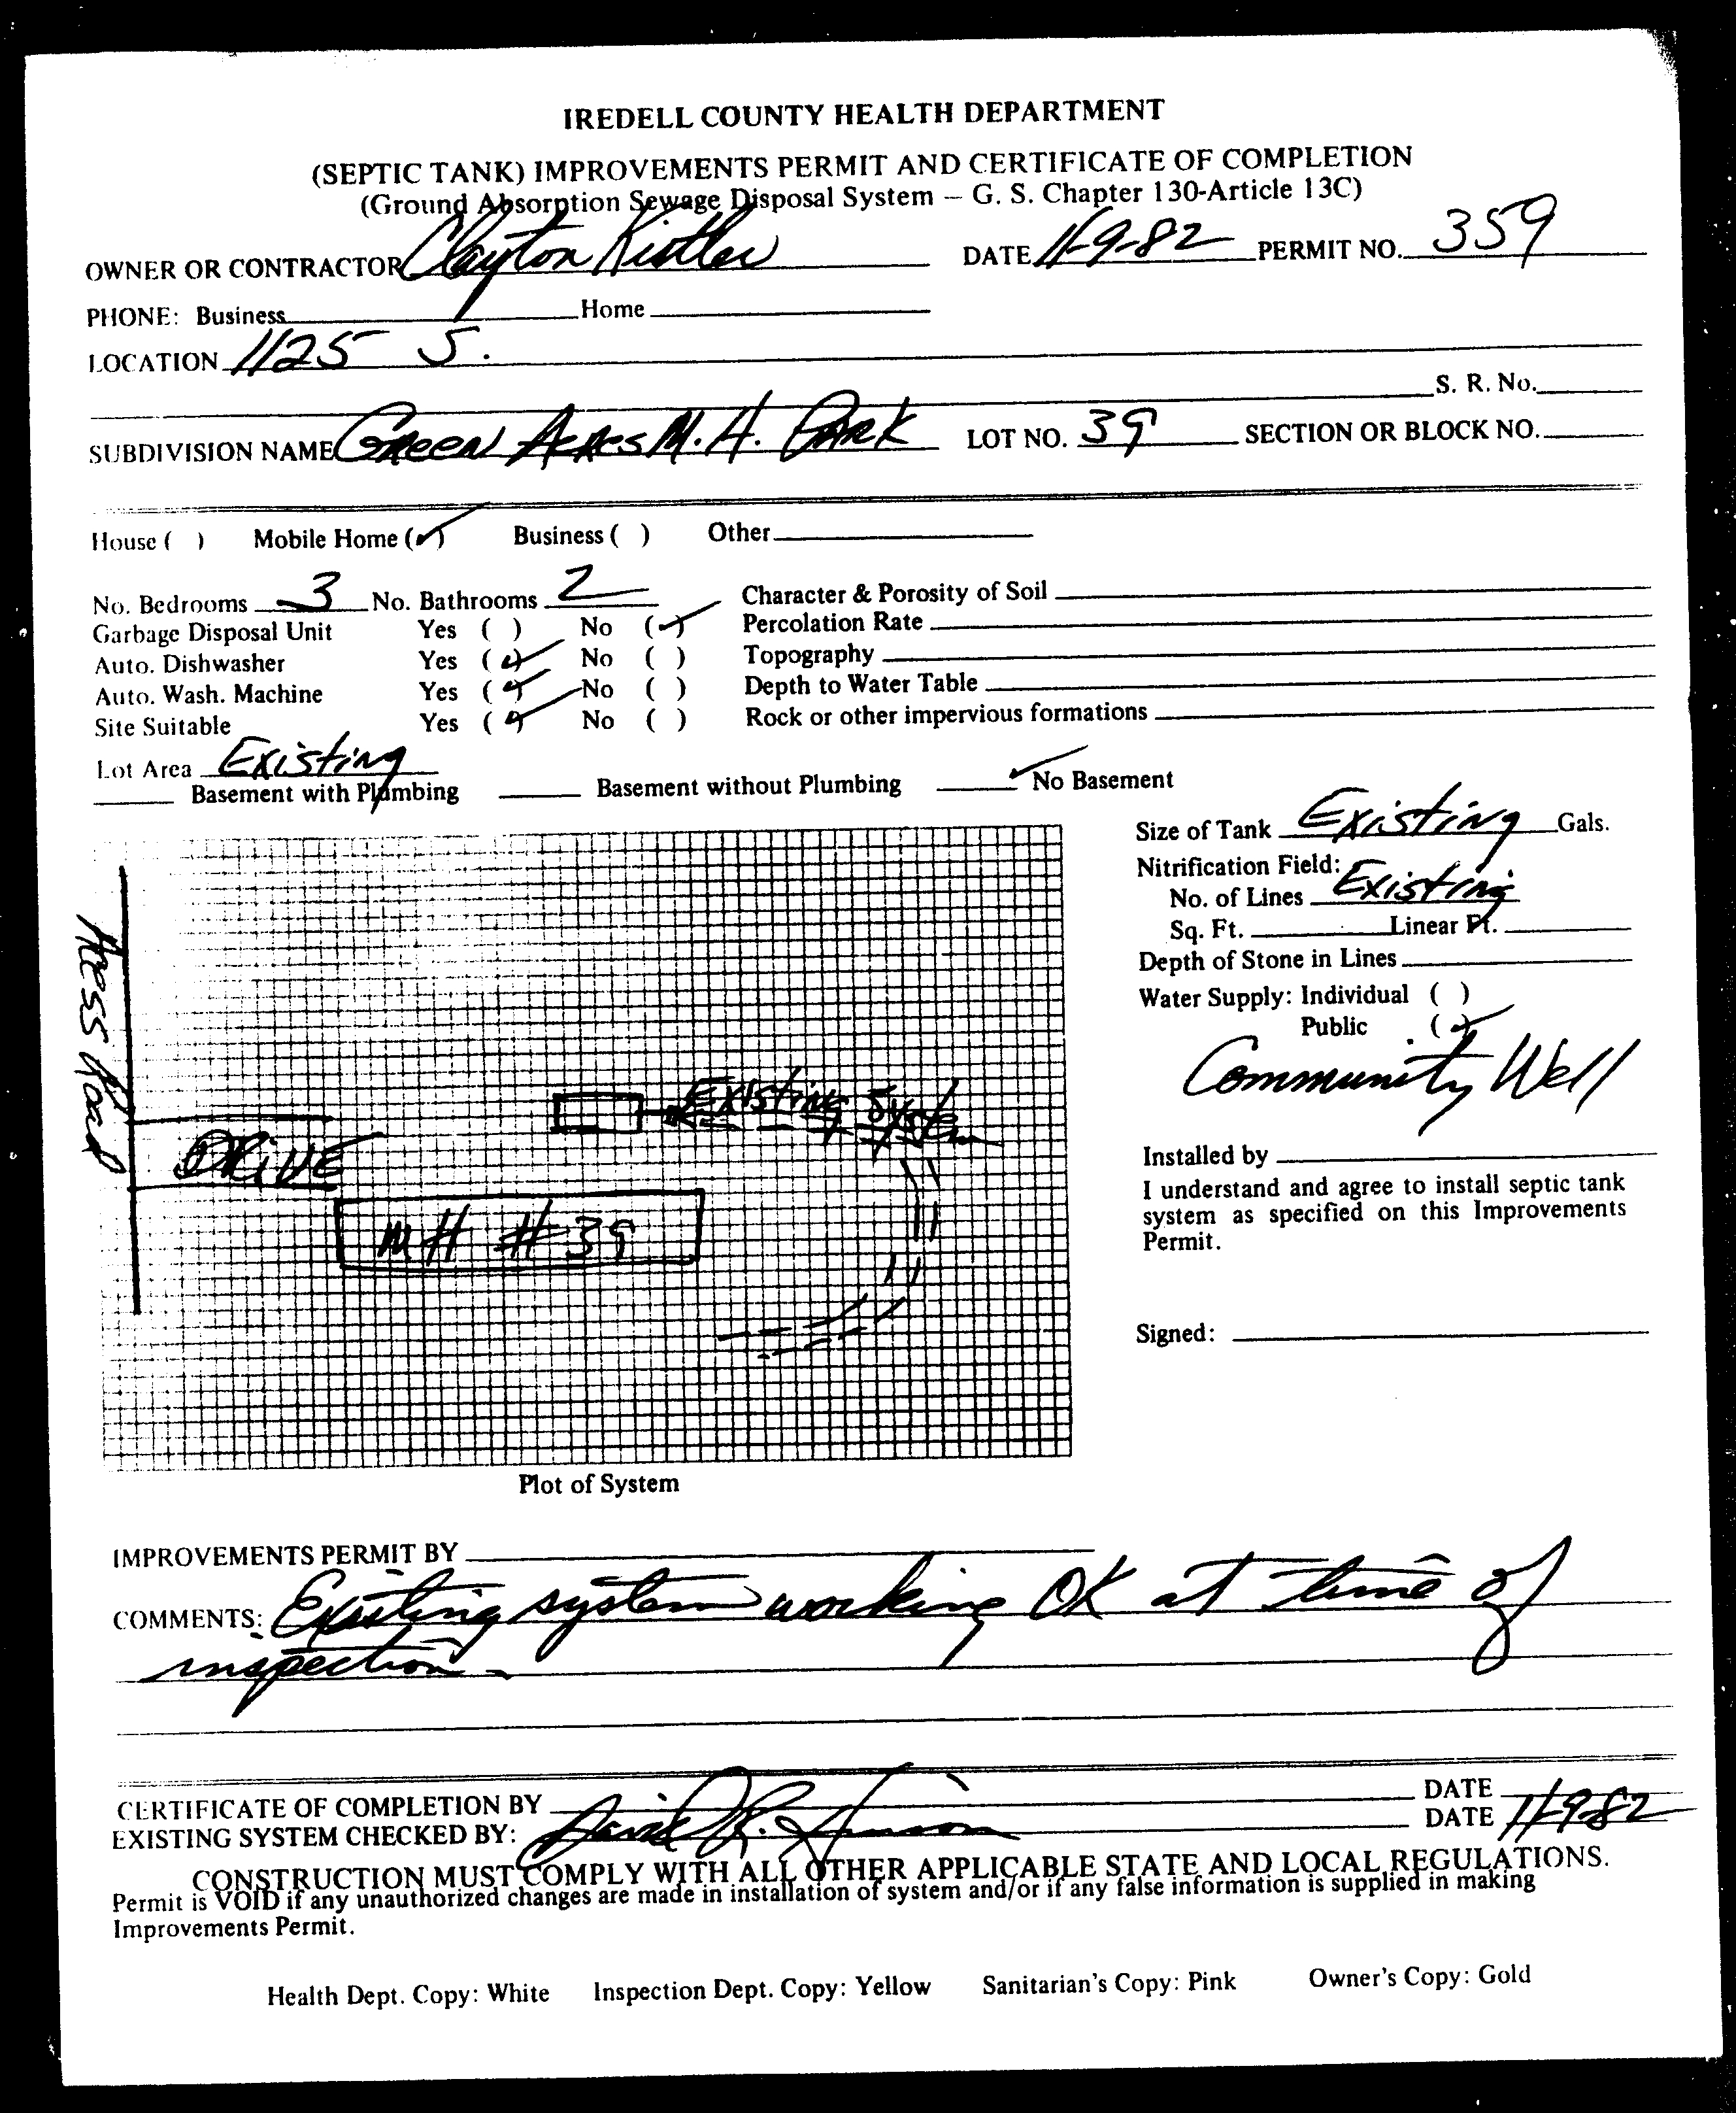 IREDELL COUNTY HEALTH DEPARTMENT
(SEPTIC TANK) IMPROVEMENTS PERMIT AND CERTIFICATE OF COMPLETION
(Ground Absorption Sewage Disposal System – G. S. Chapter 130-Article 13C)
OWNER OR CONTRACTOR Clayton Kistler DATE 11-9-82 PERMIT NO. 359
PHONE: Business Home
LOCATION 1125 S.
S. R. No.
SUBDIVISION NAME Green Acres M.H. Park LOT NO. 39 SECTION OR BLOCK NO.
House ( ) Mobile Home (✓) Business ( ) Other
No. Bedrooms 3 No. Bathrooms 2 Character & Porosity of Soil
Garbage Disposal Unit Yes ( ) No (✓) Percolation Rate
Auto. Dishwasher Yes (✓) No ( ) Topography
Auto. Wash. Machine Yes (✓) No ( ) Depth to Water Table
Site Suitable Yes (✓) No ( ) Rock or other impervious formations
Lot Area Existing
Basement with Plumbing Basement without Plumbing ✓ No Basement
Size of Tank Existing Gals.
Nitrification Field:
No. of Lines Existing
Sq. Ft. Linear Ft.
Depth of Stone in Lines
Water Supply: Individual ( )
Public (✓)
Community Well
Road
Existing System
DRIVE
MH # 39
Installed by
I understand and agree to install septic tank
system as specified on this Improvements
Permit.
Signed:
Plot of System
IMPROVEMENTS PERMIT BY
COMMENTS: Existing system working OK at time of
inspection
CERTIFICATE OF COMPLETION BY DATE
EXISTING SYSTEM CHECKED BY: David R. DATE 11-9-82
CONSTRUCTION MUST COMPLY WITH ALL OTHER APPLICABLE STATE AND LOCAL REGULATIONS.
Permit is VOID if any unauthorized changes are made in installation of system and/or if any false information is supplied in making
Improvements Permit.
Health Dept. Copy: White Inspection Dept. Copy: Yellow Sanitarian's Copy: Pink Owner's Copy: Gold